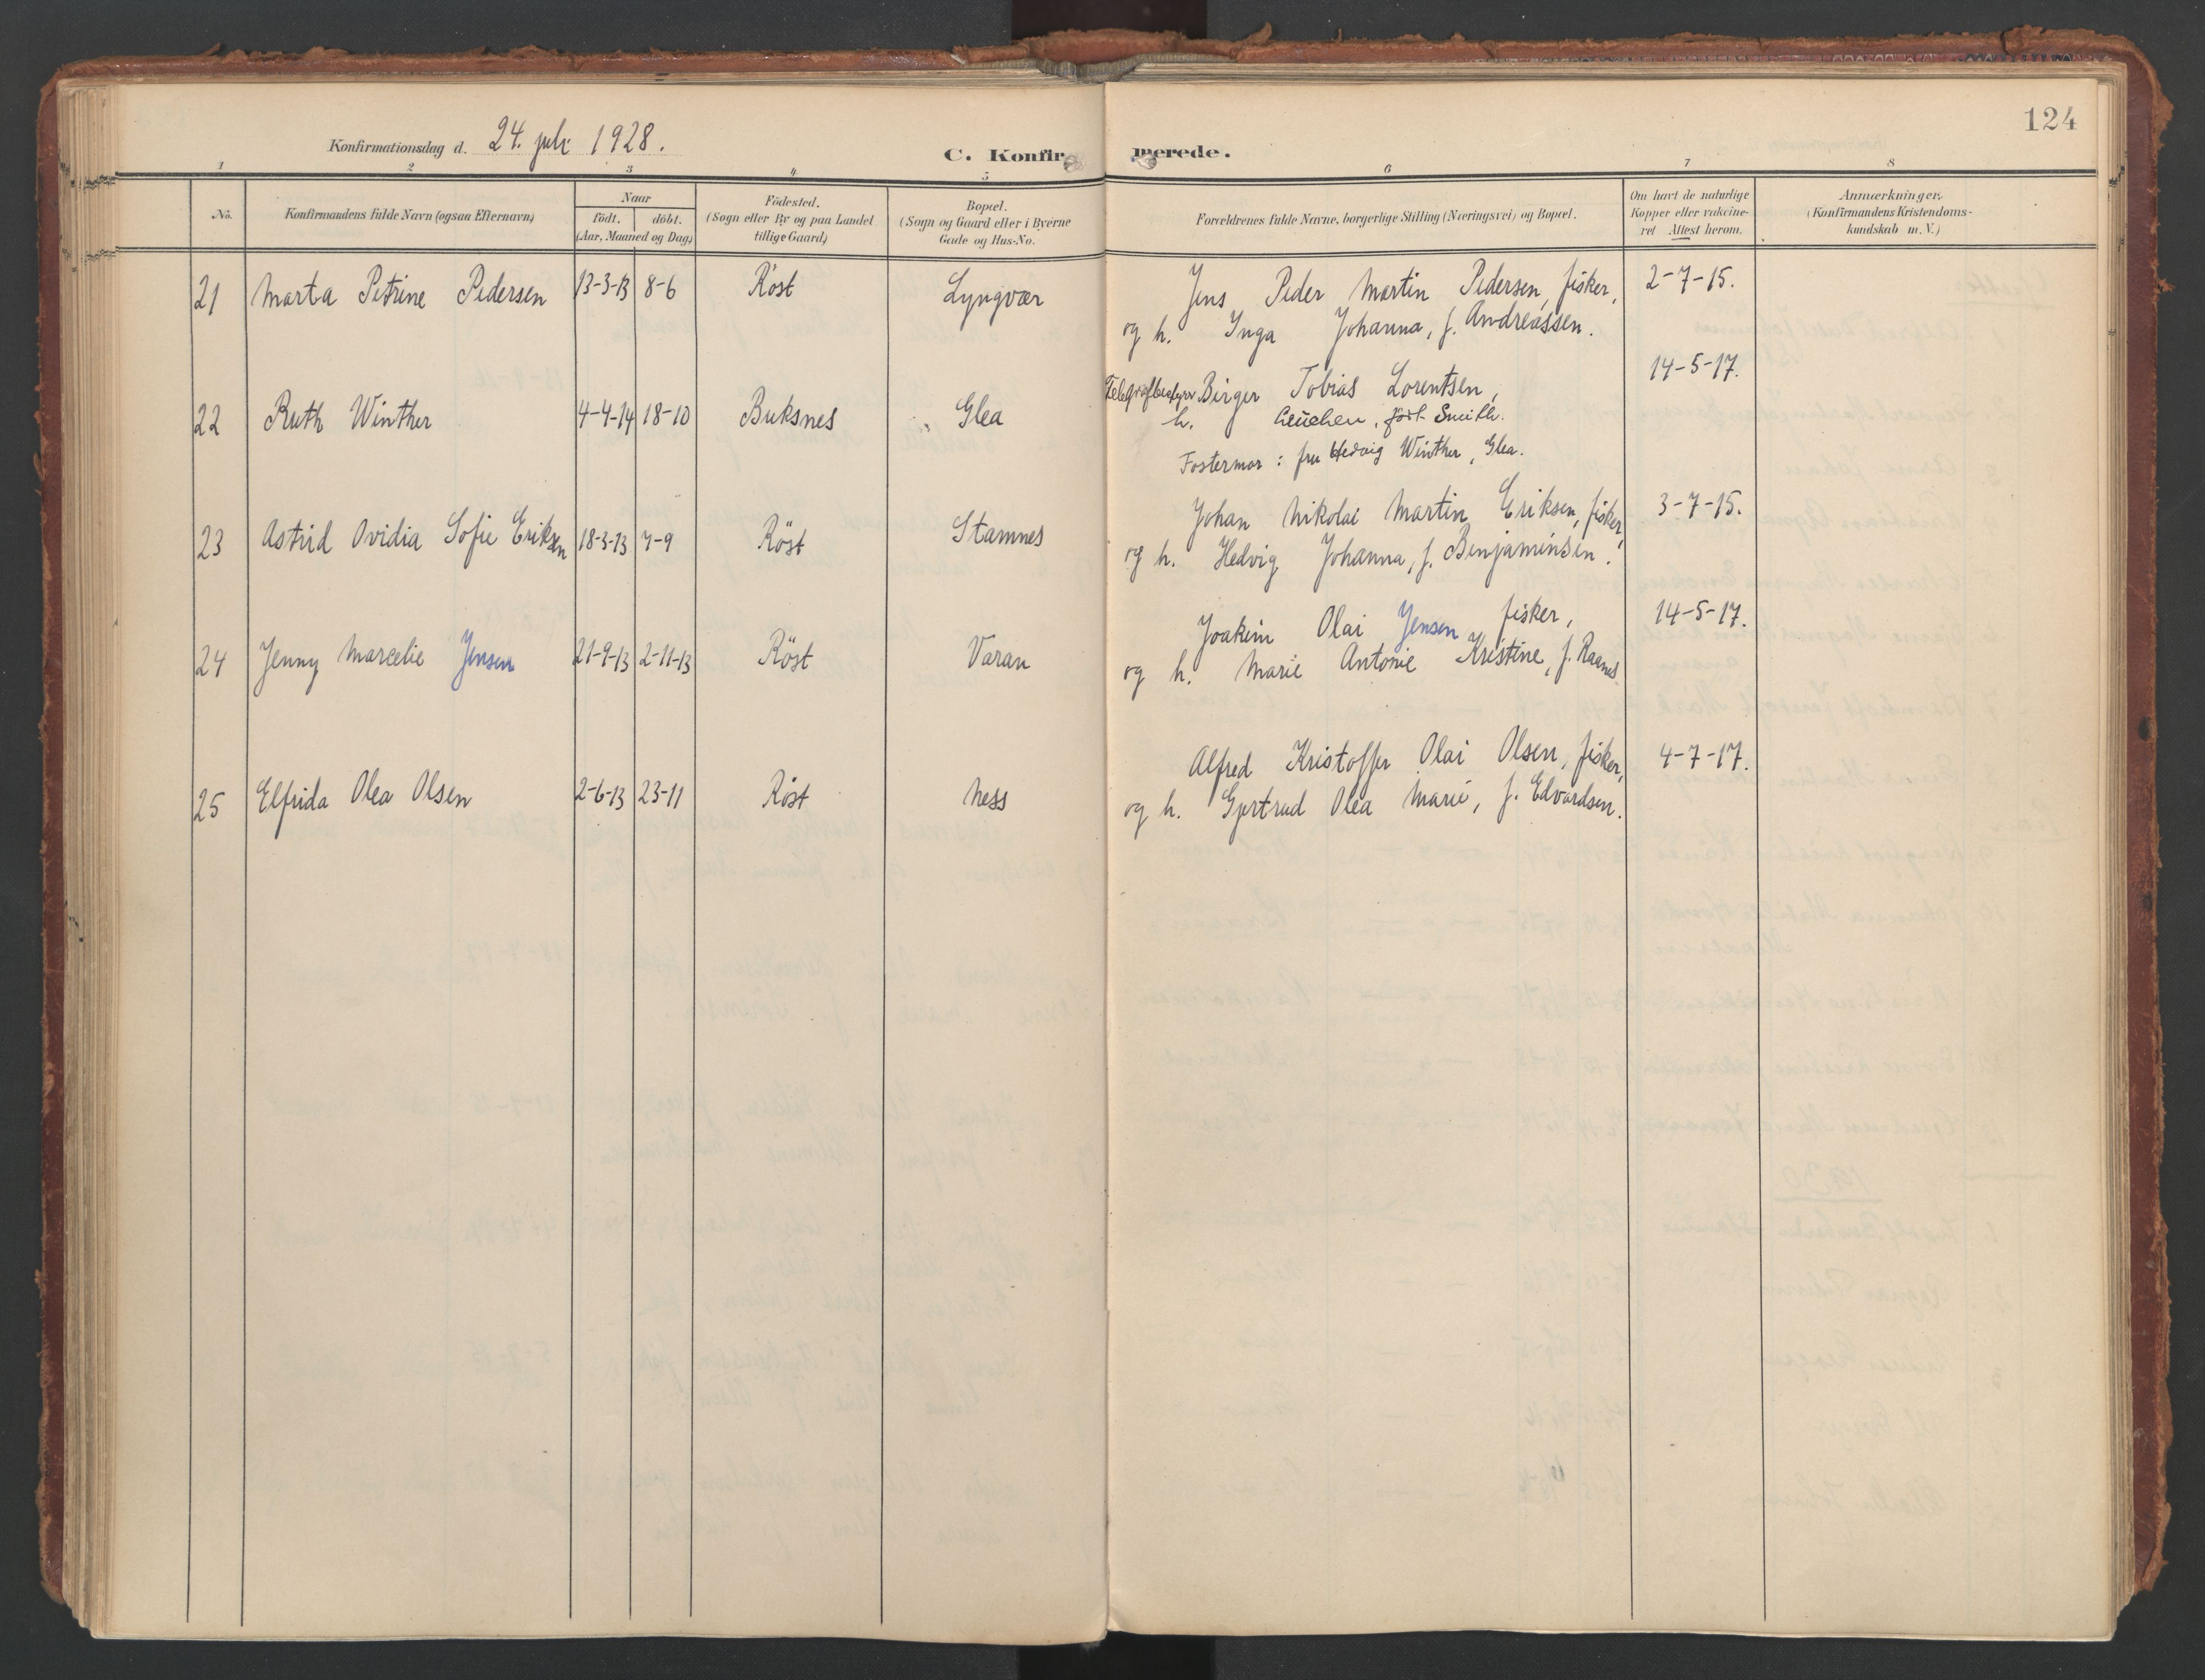 124
Konfirmationsdag d. 24. juli 1928.
C. Konfirmerede.
1 2 3 4 5 6 7 8
No.
Konfirmandens fulde Navn (ogsaa Efternavn)
Naar
født. döbt.
(Aar, Maaned og Dag)
Födested.
(Sogn eller By og paa Landet
tillige Gaard)
Bopæl.
(Sogn og Gaard eller i Byerne
Gade og Hus-No.
Forældrenes fulde Navne, borgerlige Stilling (Næringsvei) og Bopæl.
Om havt de naturlige
Kopper eller vakcine-
ret Attest herom.
Anmærkninger.
(Konfirmandens Kristendoms-
kundskab m. V.)
21 Marta Petrine Pedersen 13-3-13 8-6 Röst Lyngvær Jens Peder Martin Pedersen, fisker, 2-7-15.
og h. Inga Johanna, f. Andreassen.
22 Ruth Winther 4-4-14 18-10 Buksnes Glea Telegrafbestyrer Birger Tobias Lorentsen, 14-5-17.
h. født Smith.
Fostermor: fru Hedvig Winther, Glea.
23 Astrid Ovidia Sofie Eriksen 18-3-13 7-9 Röst Stamnes Johan Nikolai Martin Eriksen, fisker, 3-7-15.
og h. Hedvig Johanna, f. Benjaminsen.
24 Jenny Marcelie Jensen 21-9-13 2-11-13 Röst Varan Joakim Olai Jensen fisker, 14-5-17.
og h. Marie Antonie Kristine, f. Raanes.
25 Elfrida Olea Olsen 2-6-13 23-11 Röst Ness Alfred Kristoffer Olai Olsen, fisker, 4-7-17.
og h. Gjertrud Olea Marie, f. Edvardsen.